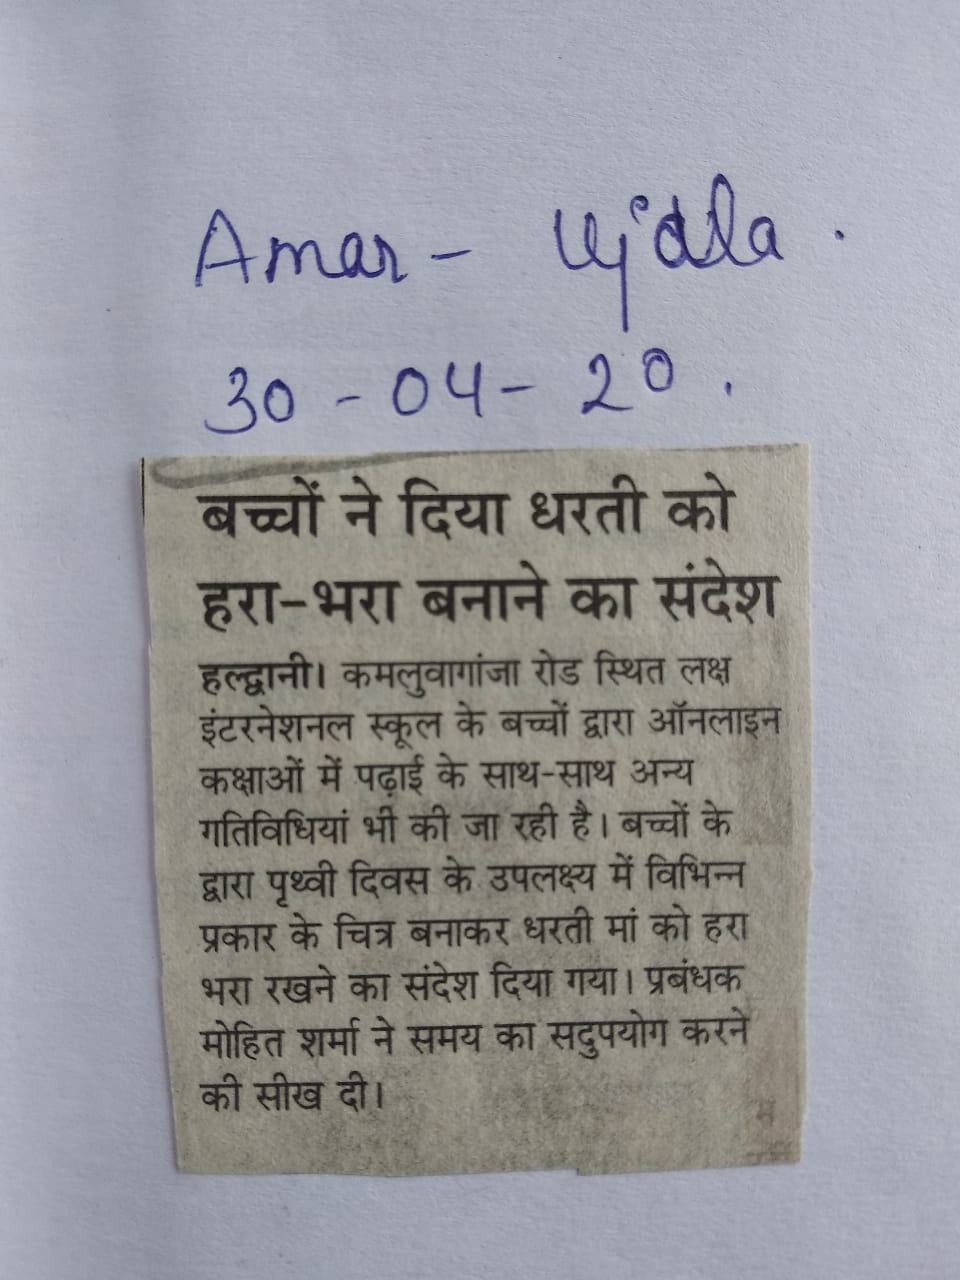 Amar - Ujala.
30-04-20.
बच्चों ने दिया धरती को
हरा-भरा बनाने का संदेश
हल्द्वानी। कमलुवागांजा रोड स्थित लक्ष
इंटरनेशनल स्कूल के बच्चों द्वारा ऑनलाइन
कक्षाओं में पढ़ाई के साथ-साथ अन्य
गतिविधियां भी की जा रही है। बच्चों के
द्वारा पृथ्वी दिवस के उपलक्ष्य में विभिन्न
प्रकार के चित्र बनाकर धरती मां को हरा
भरा रखने का संदेश दिया गया। प्रबंधक
मोहित शर्मा ने समय का सदुपयोग करने
की सीख दी।